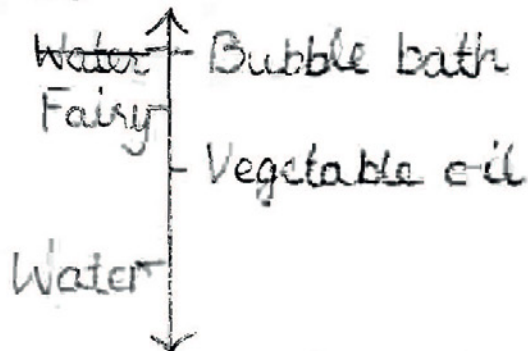 Water Bubble bath
Fairy
Vegetable oil
Water